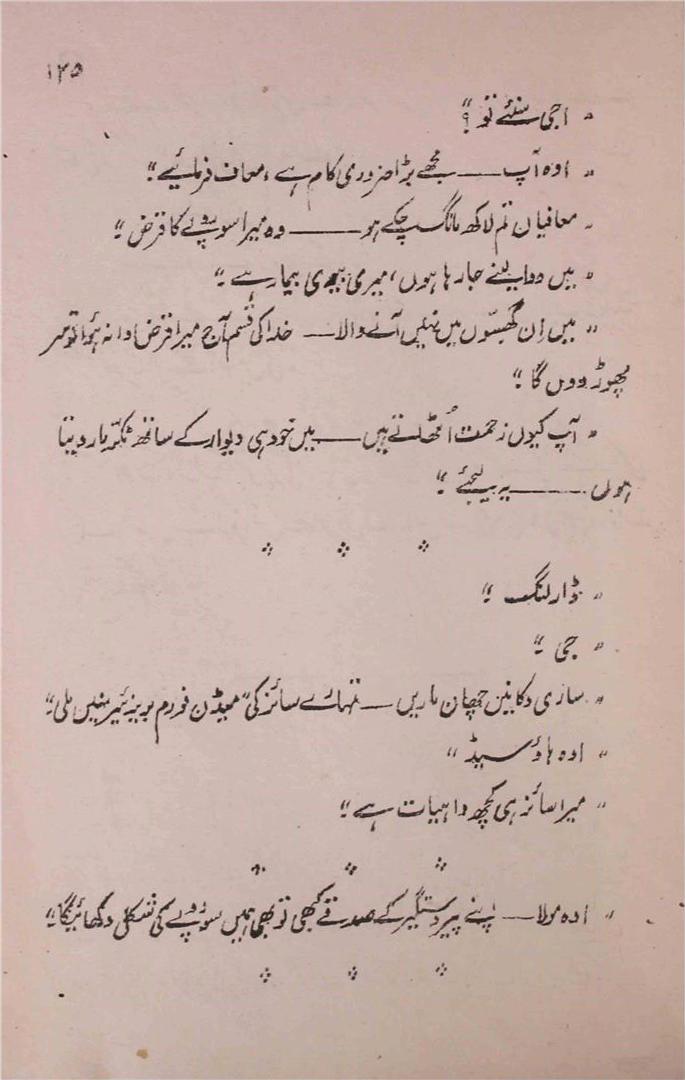 ۱۲۵
" اجی سنئے تو ؟"
" اوہ آپ —— مجھے بڑا ضروری کام ہے، معاف فرمائیے "
" معافیاں تم لاکھ مانگ چکے ہو —— وہ میرا سو روپے کا قرض "
" میں دوا لینے جا رہا ہوں، میری بیوی بیمار ہے "
" میں اِن گھسّوں میں نہیں آنے والا — خدا کی قسم آج میرا قرض ادا نہ ہوا تو سر
پھوڑ دوں گا "
" آپ کیوں زحمت اُٹھاتے ہیں —— میں خود ہی دیوار کے ساتھ ٹکّر مار دیتا
ہوں —— یہ لیجئے "
" ڈارلنگ "
" جی "
" ساری دکانیں چھان ماریں — تمہارے سائز کی "میڈن فورم بریزئیر نہیں ملی "
" اوہ ہاؤ سیڈ "
" میرا سائز ہی کچھ واہیات ہے "
" اوہ مولا — اپنے پیر دستگیر کے صدقے کبھی تو بھی ہمیں سو روپے کی شکل دکھائیگا "